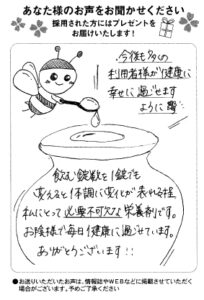 あなた様のお声をお聞かせください
採用された方にはプレゼントを
お届けいたします!
今後も多くの
利用者様が健康に
幸せに過ごせます
ように
飲む錠数を1錠でも
変えると体調に変化が表れる程
私にとって必要不可欠な栄養剤です。
お陰様で毎日健康に過ごせています。
ありがとうございます!!
●お送りいただいたお声は、情報誌やWEBなどに掲載させていただく
場合がございます。予めご了承ください